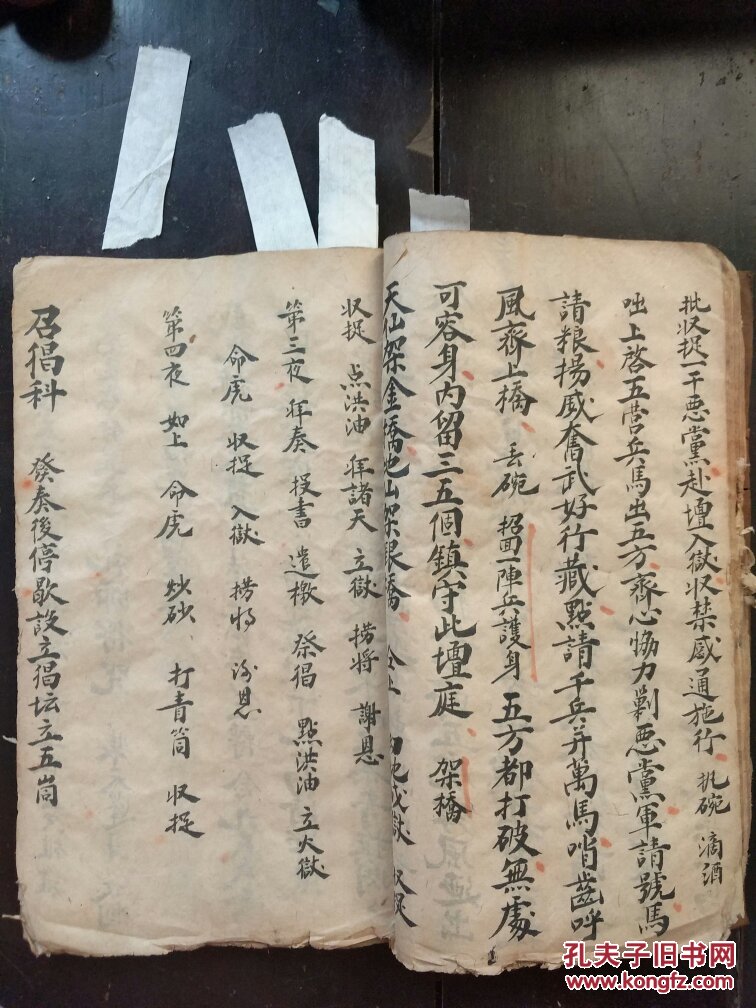 批収捉一干悪黨赴壇入獄収禁感通施行 執碗 滴酒
咄上啓五营兵馬出五方齊心恊力剿悪黨軍請號馬
請粮揚威奮武好行藏點請千兵并萬馬哨齒呼
風齊上橋 丢碗 招回一陣兵護身 五方都打破無處
可容身内留三五個鎮守此壇庭 架橋
天仙架金橋地山架銀橋
収捉 点洪油 拜諸天 立獄 捞将 謝恩
第三夜 拜奏 投書 遣檄 祭猖 點洪油 立火獄
命虎 収捉 入獄 捞将 谢恩
第四夜 如上 命虎 炒砂 打青筒 収捉
召猖科 發奏後停歇設立猖坛立五崗
孔夫子旧书网
kongfz.com